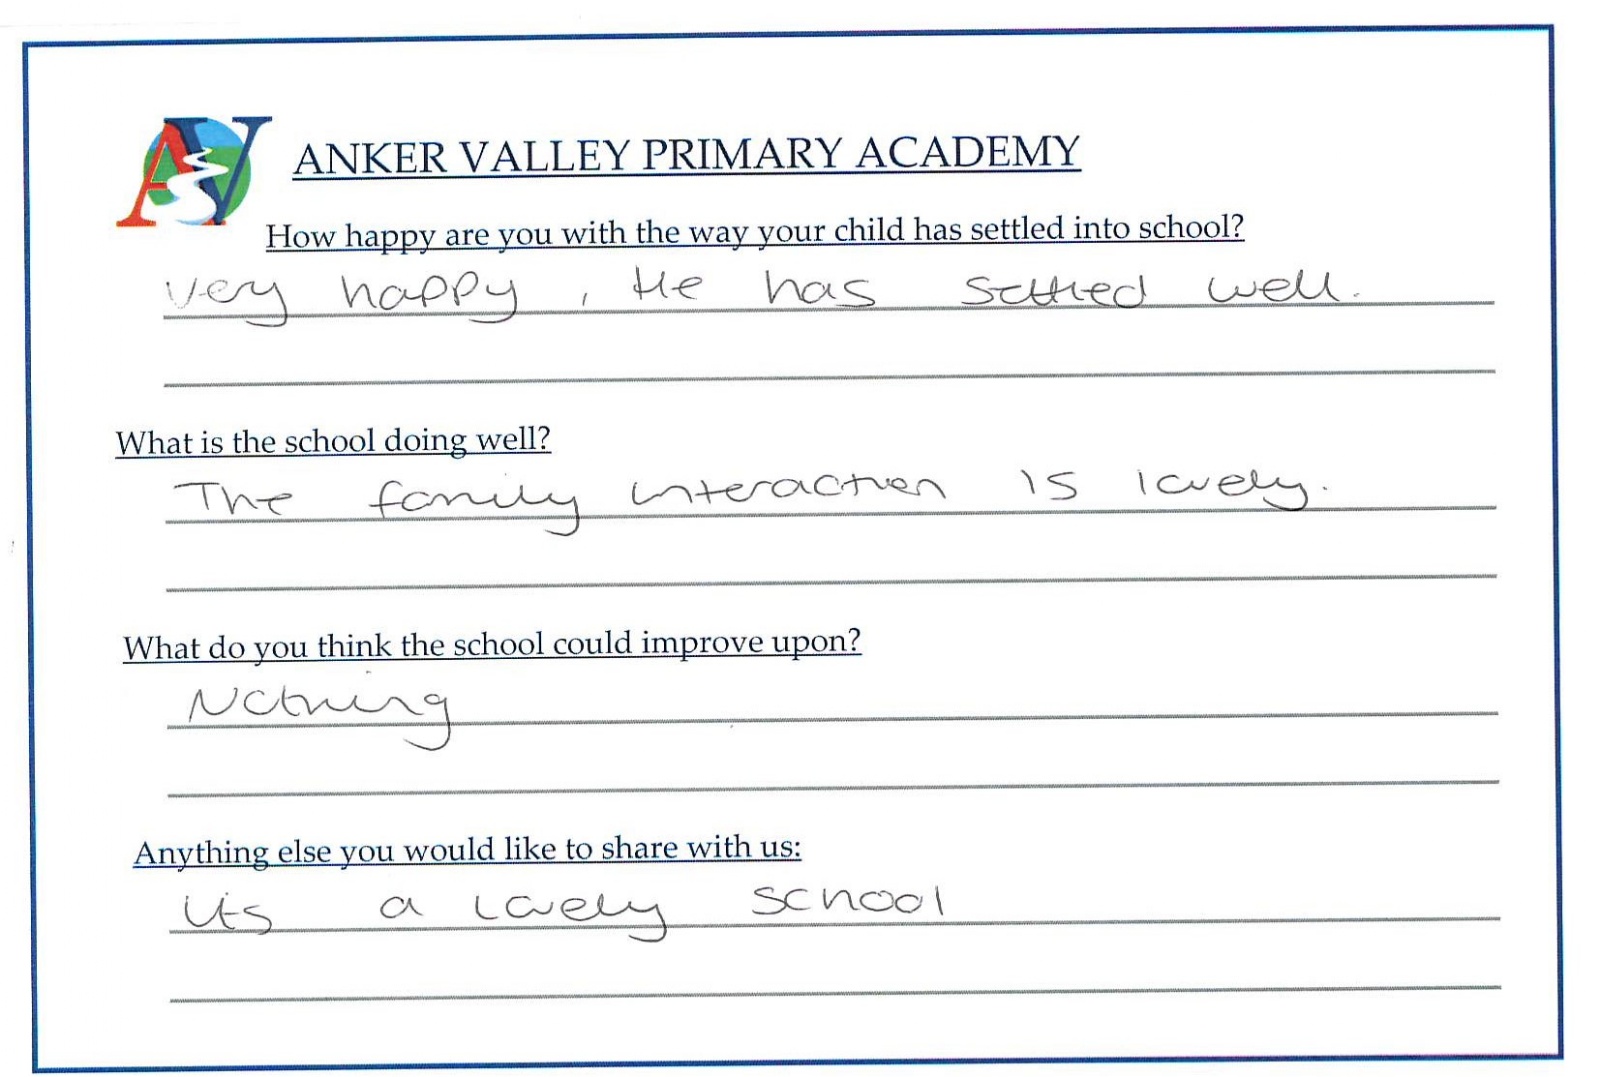 AV
ANKER VALLEY PRIMARY ACADEMY
How happy are you with the way your child has settled into school?
Very happy, He has settled well.
What is the school doing well?
The family interaction is lovely.
What do you think the school could improve upon?
Nothing
Anything else you would like to share with us:
its a lovely school